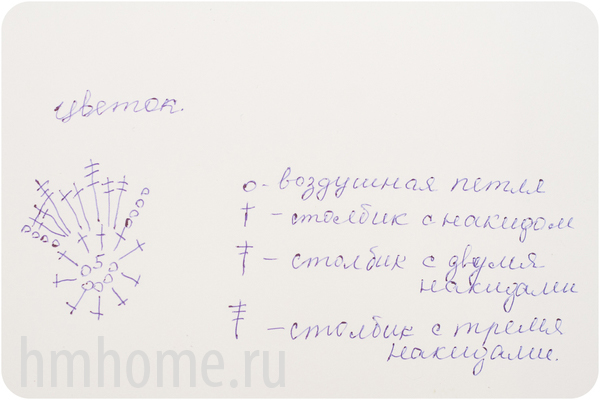 цветок.
5
о - воздушная петля
- столбик с накидом
- столбик с двумя
накидами
- столбик с тремя
накидами.
hmhome.ru